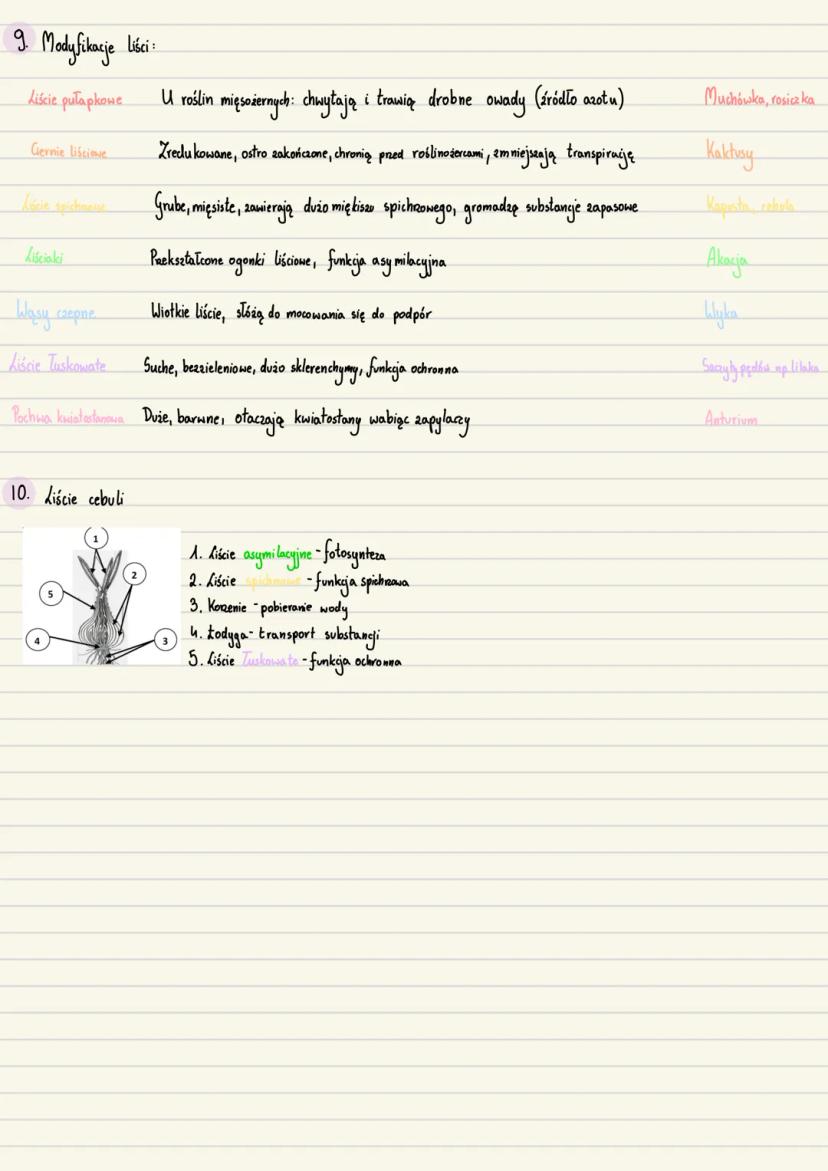 9. Modyfikacje liści:
Liście pułapkowe U roślin mięsożernych: chwytają i trawią drobne owady (źródło azotu) Muchówka, rosiczka
Ciernie liściowe Zredukowane, ostro zakończone, chronią przed roślinożercami, zmniejszają transpirację Kaktusy
Liście spichrzowe Grube, mięsiste, zawierają dużo miękiszu spichrzowego, gromadzą substancje zapasowe Kapusta, cebula
Liściaki Przekształcone ogonki liściowe, funkcja asymilacyjna Akacja
Wąsy czepne Wiotkie liście, słóżą do mocowania się do podpór Wyka
Liście Łuskowate Suche, bezzieleniowe, dużo sklerenchymy, funkcja ochronna Szczyty pędów np. lilaka
Pochwa kwiatostanowa Duże, barwne, otaczają kwiatostany wabiąc zapylaczy Anturium
10. Liście cebuli
1
2
5
4
3
1. Liście asymilacyjne - fotosynteza
2. Liście spichrzowe - funkcja spichrzowa
3. Korzenie - pobieranie wody
4. Łodyga - transport substancji
5. Liście Łuskowate - funkcja ochronna